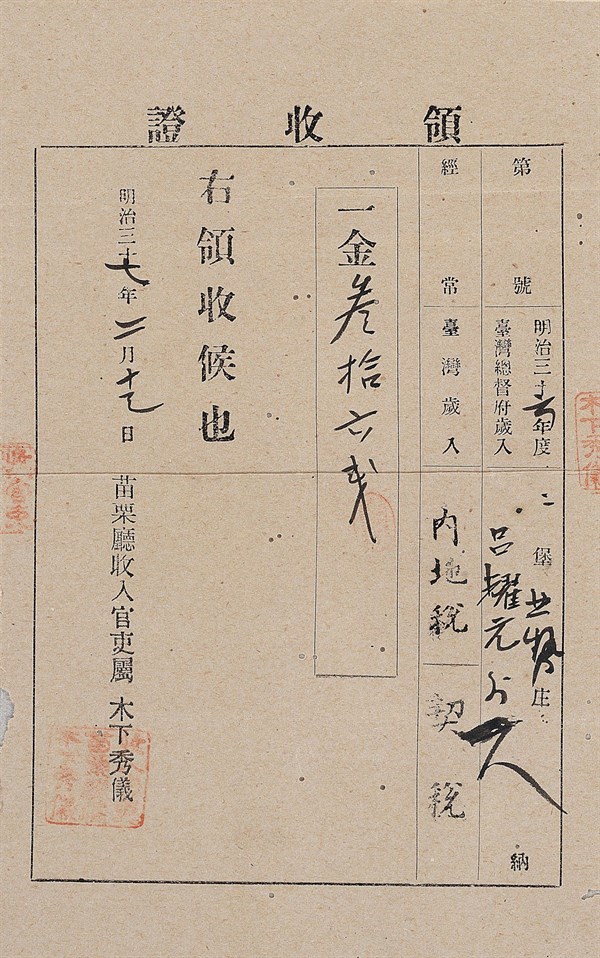 領收證
第　號
明治三十六年度
臺灣總督府歲入
二堡　庄
呂耀元外一人
納
經常
臺灣歲入
內地稅
契稅
一金叁拾六戔
右領收候也
明治三十七年二月十七日
苗栗廳收入官吏屬 木下秀儀
木下秀儀